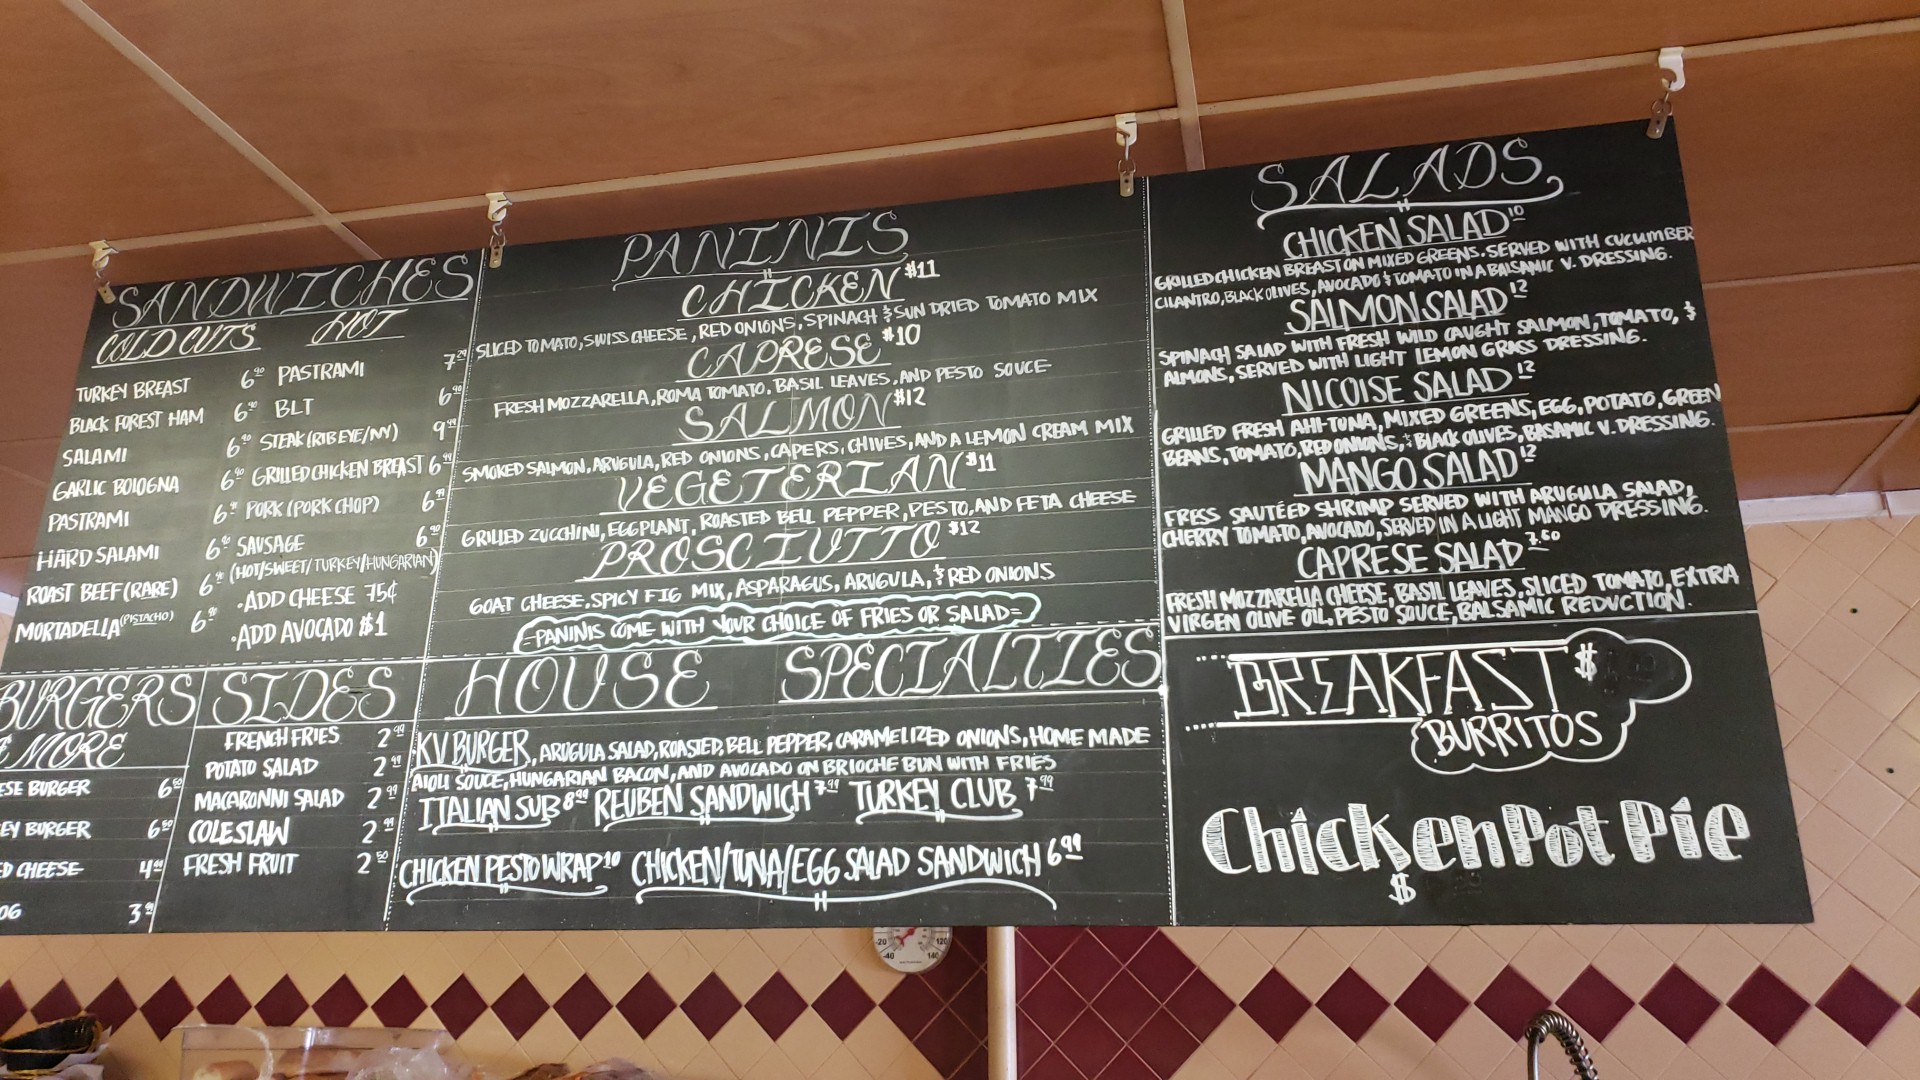 SANDWICHES
COLD CUTS HOT
TURKEY BREAST 6.90
BLACK FOREST HAM 6.90
SALAMI 6.90
GARLIC BOLOGNA 6.90
PASTRAMI 6.90
HARD SALAMI 6.90
ROAST BEEF (RARE) 6.90
MORTADELLA (PISTACHO) 6.90
PASTRAMI 7.29
BLT 6.90
STEAK (RIB EYE/NY) 9.99
GRILLED CHICKEN BREAST 6.99
PORK (PORK CHOP) 6.99
SAUSAGE 6.90
(HOT/SWEET/TURKEY/HUNGARIAN)
•ADD CHEESE 75¢
•ADD AVOCADO $1
PANINIS
CHICKEN $11
SLICED TOMATO, SWISS CHEESE, RED ONIONS, SPINACH & SUN DRIED TOMATO MIX
CAPRESE $10
FRESH MOZZARELLA, ROMA TOMATO, BASIL LEAVES, AND PESTO SOUCE
SALMON $12
SMOKED SALMON, ARUGULA, RED ONIONS, CAPERS, CHIVES, AND A LEMON CREAM MIX
VEGETERIAN $11
GRILLED ZUCCHINI, EGGPLANT, ROASTED BELL PEPPER, PESTO, AND FETA CHEESE
PROSCIUTTO $12
GOAT CHEESE, SPICY FIG MIX, ASPARAGUS, ARUGULA, & RED ONIONS
-PANINIS COME WITH YOUR CHOICE OF FRIES OR SALAD-
SALADS
CHICKEN SALAD 10
GRILLED CHICKEN BREAST ON MIXED GREENS. SERVED WITH CUCUMBER
CILANTRO, BLACK OLIVES, AVOCADO & TOMATO IN A BALSAMIC V. DRESSING.
SALMON SALAD 12
SPINACH SALAD WITH FRESH WILD CAUGHT SALMON, TOMATO, &
ALMONS, SERVED WITH LIGHT LEMON GRASS DRESSING.
NICOISE SALAD 12
GRILLED FRESH AHI-TUNA, MIXED GREENS, EGG, POTATO, GREEN
BEANS, TOMATO, RED ONIONS, & BLACK OLIVES, BASAMIC V. DRESSING.
MANGO SALAD 12
FRESS SAUTÉED SHRIMP SERVED WITH ARUGULA SALAD,
CHERRY TOMATO, AVOCADO, SERVED IN A LIGHT MANGO DRESSING.
CAPRESE SALAD 7.50
FRESH MOZZARELLA CHEESE, BASIL LEAVES, SLICED TOMATO, EXTRA
VIRGEN OLIVE OIL, PESTO SOUCE, BALSAMIC REDUCTION.
BURGERS
& MORE
ESE BURGER 6.50
EY BURGER 6.50
ED CHEESE 4.99
OG 3.99
SIDES
FRENCH FRIES 2.99
POTATO SALAD 2.99
MACARONNI SALAD 2.99
COLESLAW 2.99
FRESH FRUIT 2.50
HOUSE SPECIALTIES
KV BURGER, ARUGULA SALAD, ROASTED, BELL PEPPER, CARAMELIZED ONIONS, HOME MADE
AIOLI SOUCE, HUNGARIAN BACON, AND AVOCADO ON BRIOCHE BUN WITH FRIES
ITALIAN SUB 8.99 REUBEN SANDWICH 7.99 TURKEY CLUB 7.99
CHICKEN PESTO WRAP 10 CHICKEN/TUNA/EGG SALAD SANDWICH 6.99
BREAKFAST $
BURRITOS
Chicken Pot Pie
$
-20 120
-40 140